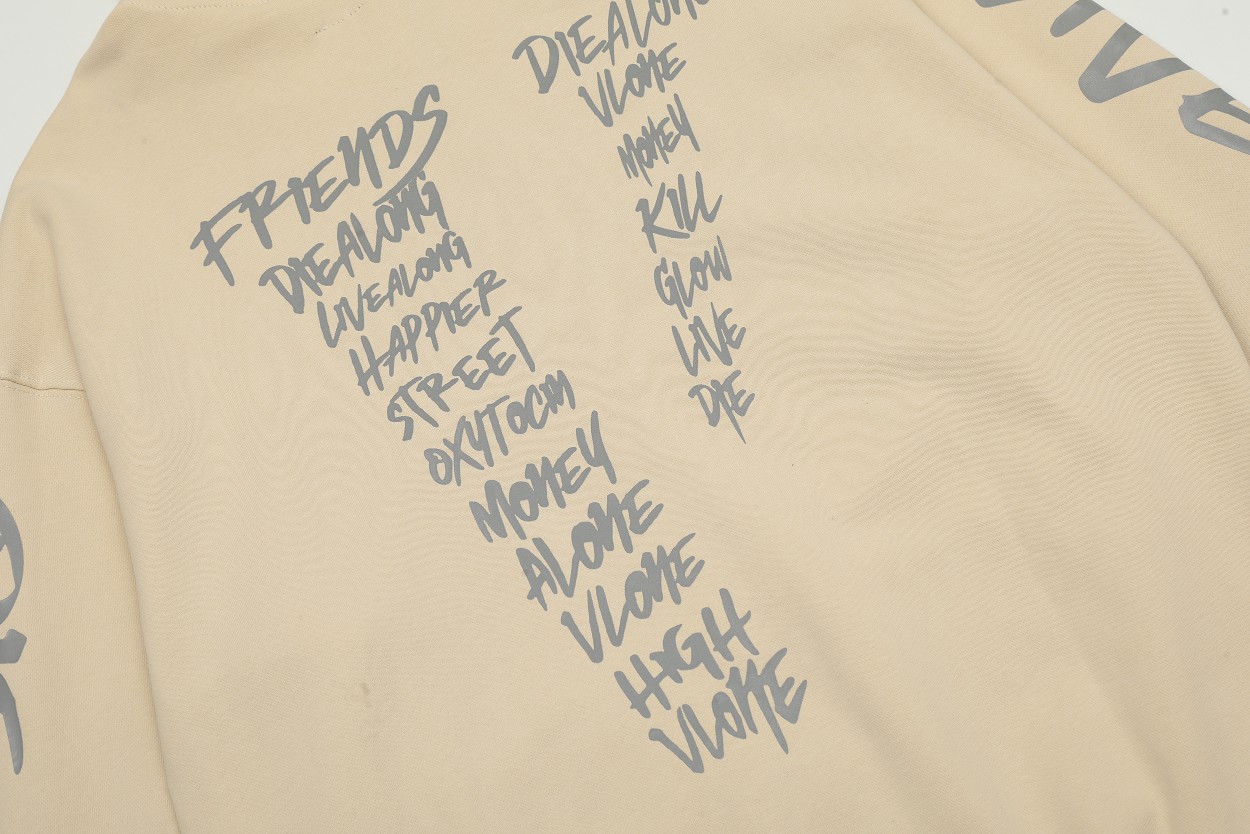 FRIENDS
DIEALONG
LIVEALONG
HAPPIER
STREET
OXYTOCIN
MONEY
ALONE
VLONE
HIGH
VLONE
DIEALONG
VLONE
MONEY
KILL
GLOW
LIVE
DIE